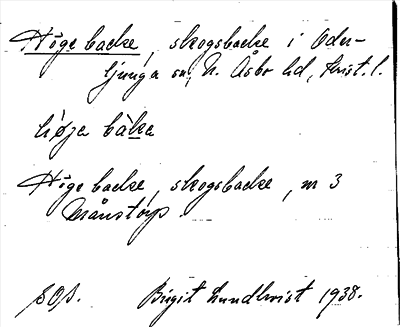 Höge backe, skogsbacke i Oder-
ljunga sn, N. Åsbo hd, Krist. l.
höja bàka
Höge backe, skogsbacke, nr 3
Månstorp.
SOÅ. Birgit Lundkvist 1938.